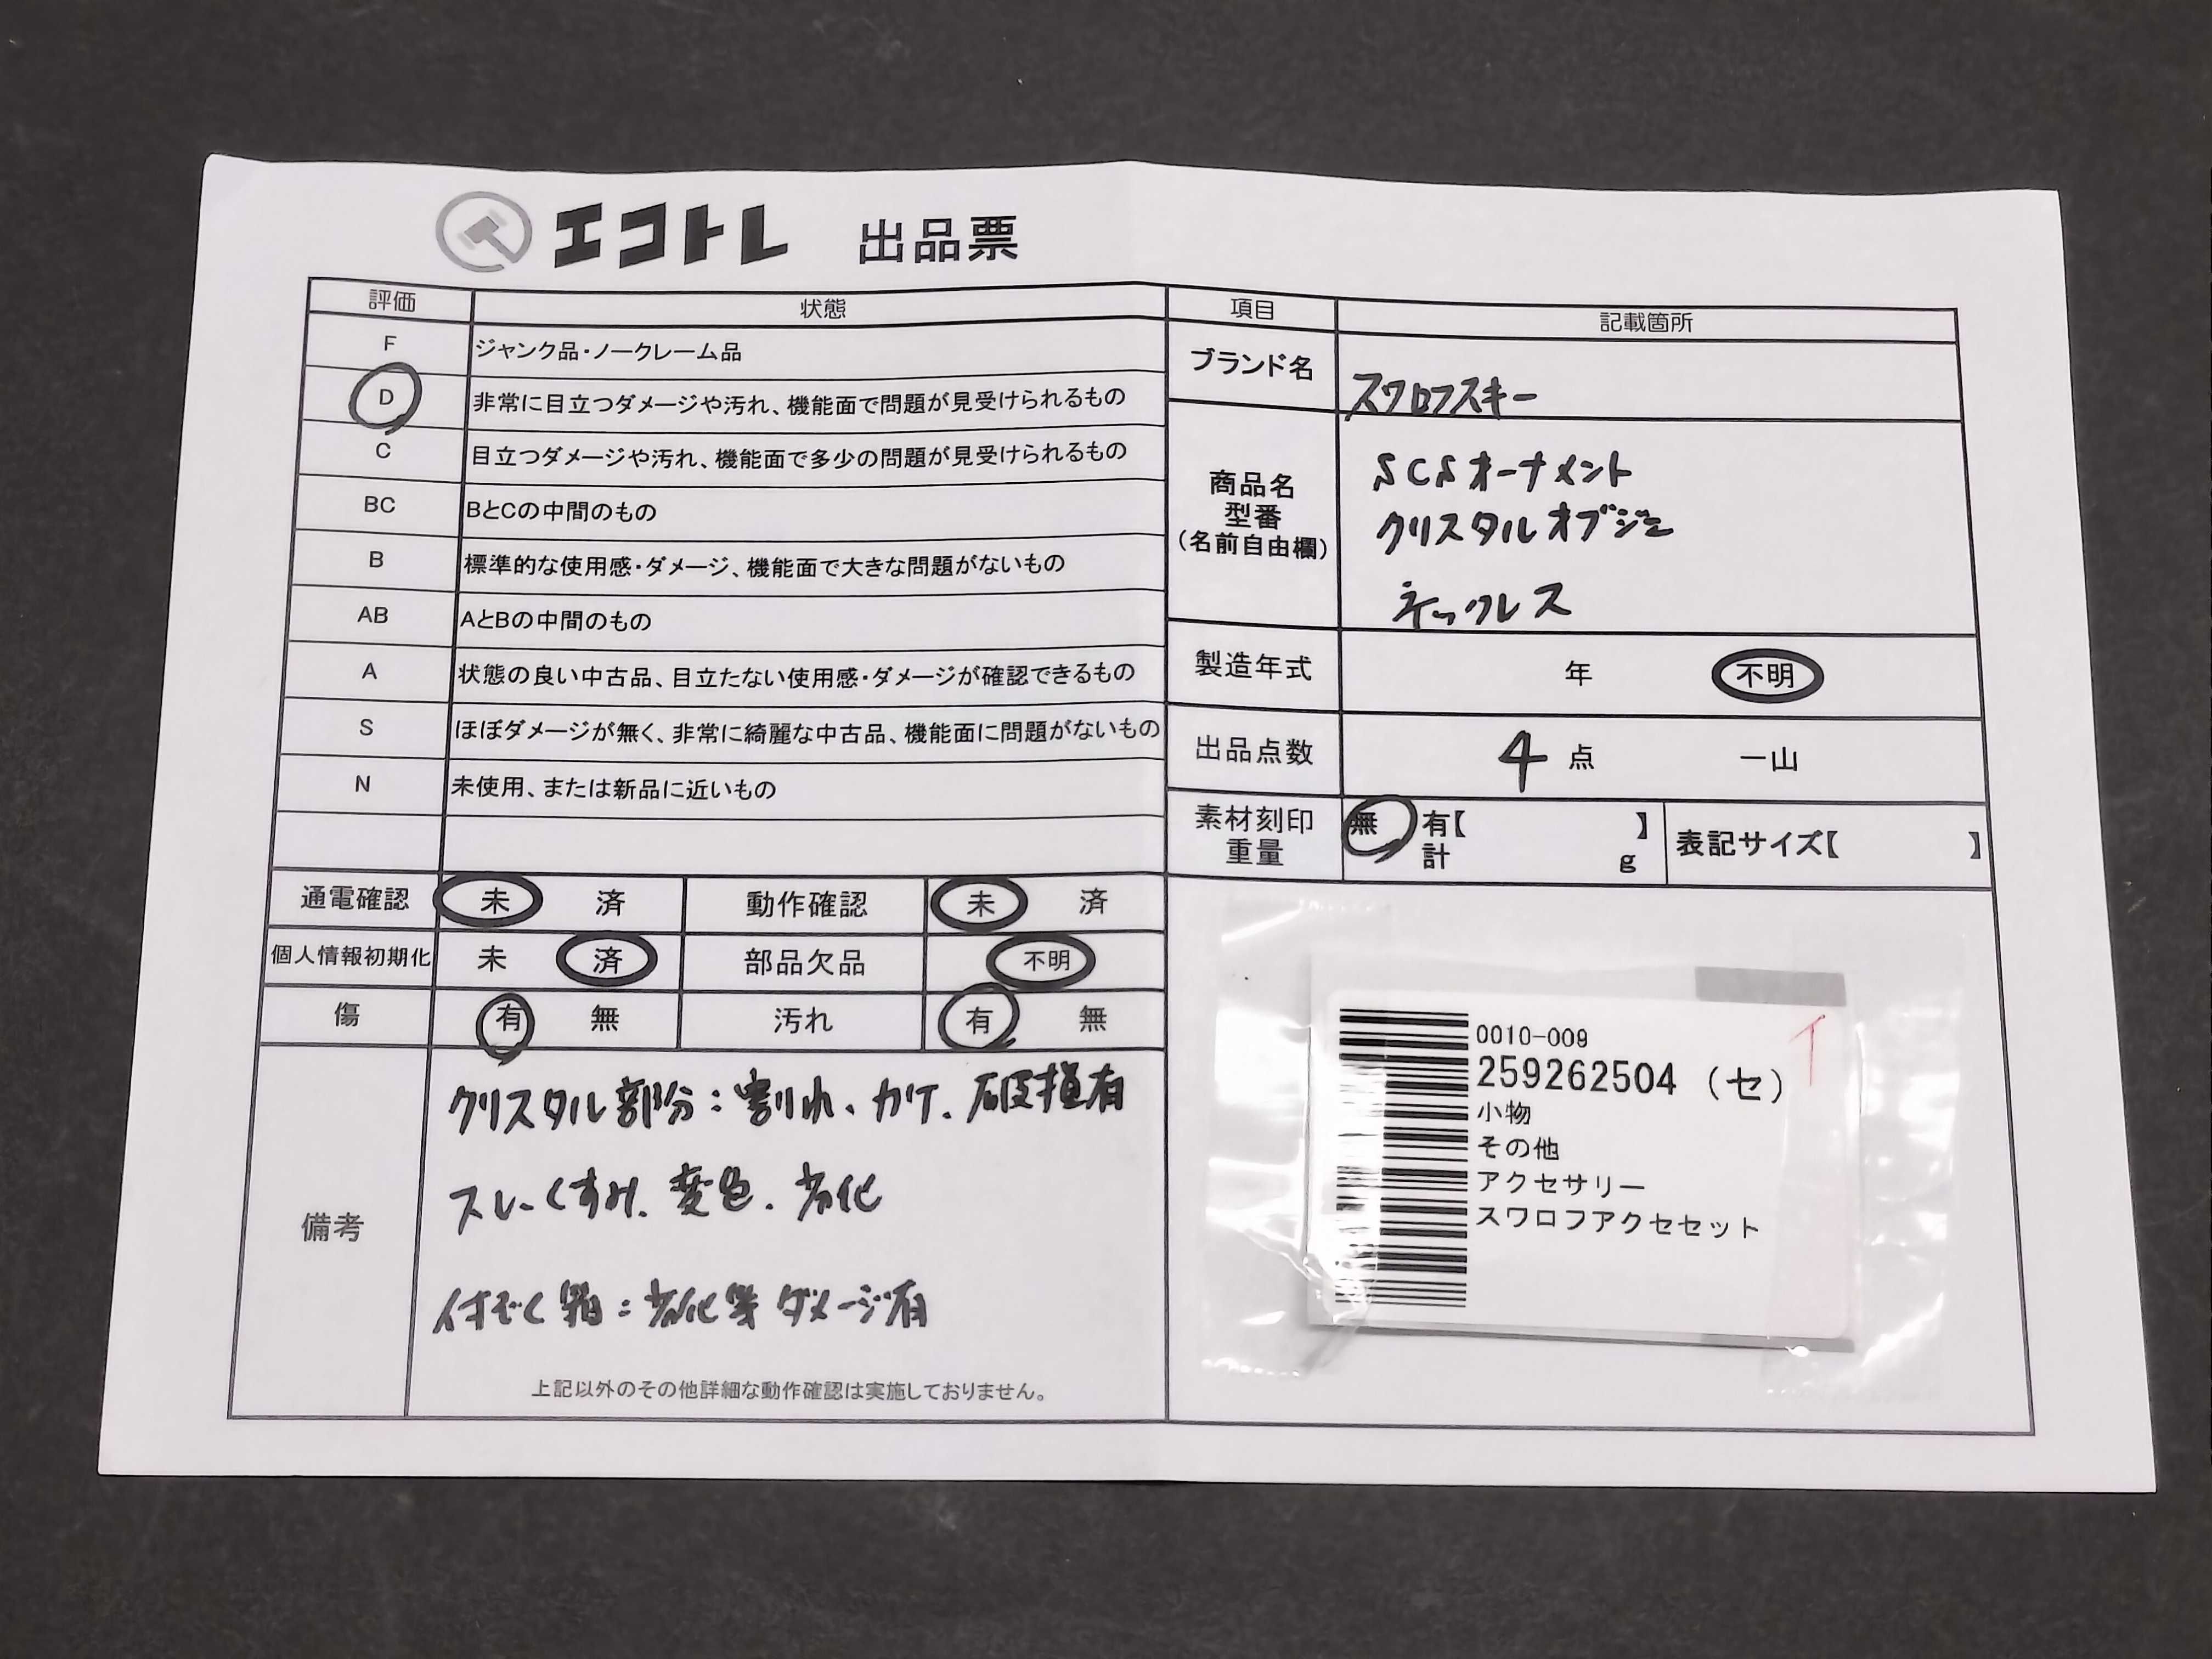 エコトレ 出品票
評価 状態
F ジャンク品・ノークレーム品
D 非常に目立つダメージや汚れ、機能面で問題が見受けられるもの
C 目立つダメージや汚れ、機能面で多少の問題が見受けられるもの
BC BとCの中間のもの
B 標準的な使用感・ダメージ、機能面で大きな問題がないもの
AB AとBの中間のもの
A 状態の良い中古品、目立たない使用感・ダメージが確認できるもの
S ほぼダメージが無く、非常に綺麗な中古品、機能面に問題がないもの
N 未使用、または新品に近いもの
通電確認 未 済 動作確認 未 済
個人情報初期化 未 済 部品欠品 不明
傷 有 無 汚れ 有 無
備考
クリスタル部分:割れ、カケ、破損有
スレ、くすみ、変色、劣化
付ぞく箱:劣化等ダメージ有
上記以外のその他詳細な動作確認は実施しておりません。
項目 記載箇所
ブランド名 スワロフスキー
商品名
型番
(名前自由欄)
SCSオーナメント
クリスタルオブジェ
ネックレス
製造年式 年 不明
出品点数 4点 一山
素材刻印 無 有【 】 表記サイズ【 】
重量 計 g
0010-009
259262504 (セ)
小物
その他
アクセサリー
スワロフアクセセット